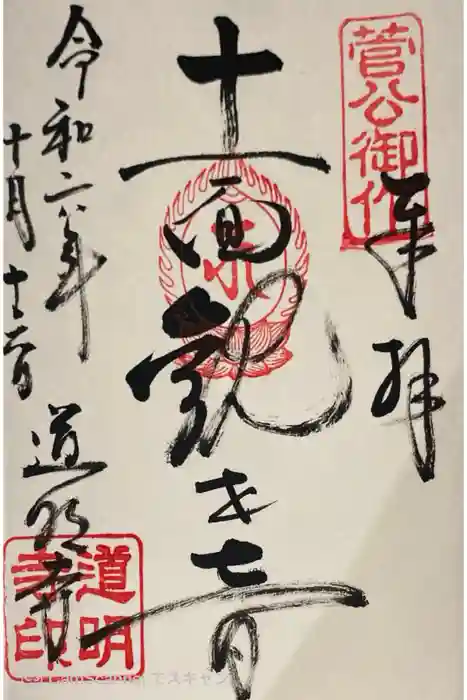 菅公御作
奉拝
十一面観世音
令和六年
十月十二日
道明寺
道明寺印
CamScanner でスキャン